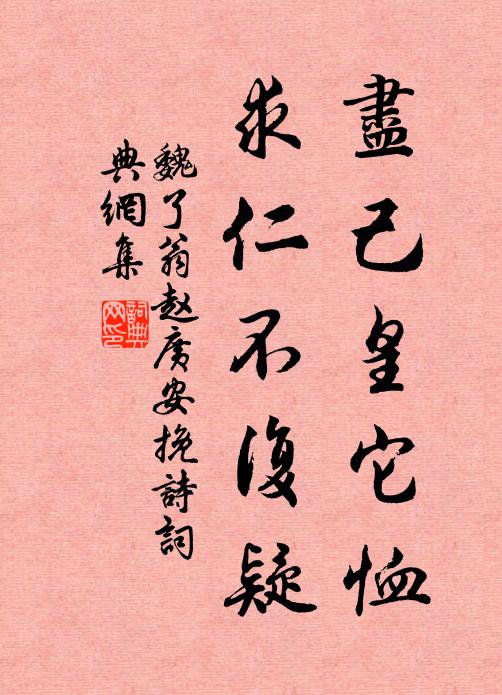 盡己皇它恤
求仁不復疑
魏了翁赵廣安挽詩詞
典網集
詞典
网印